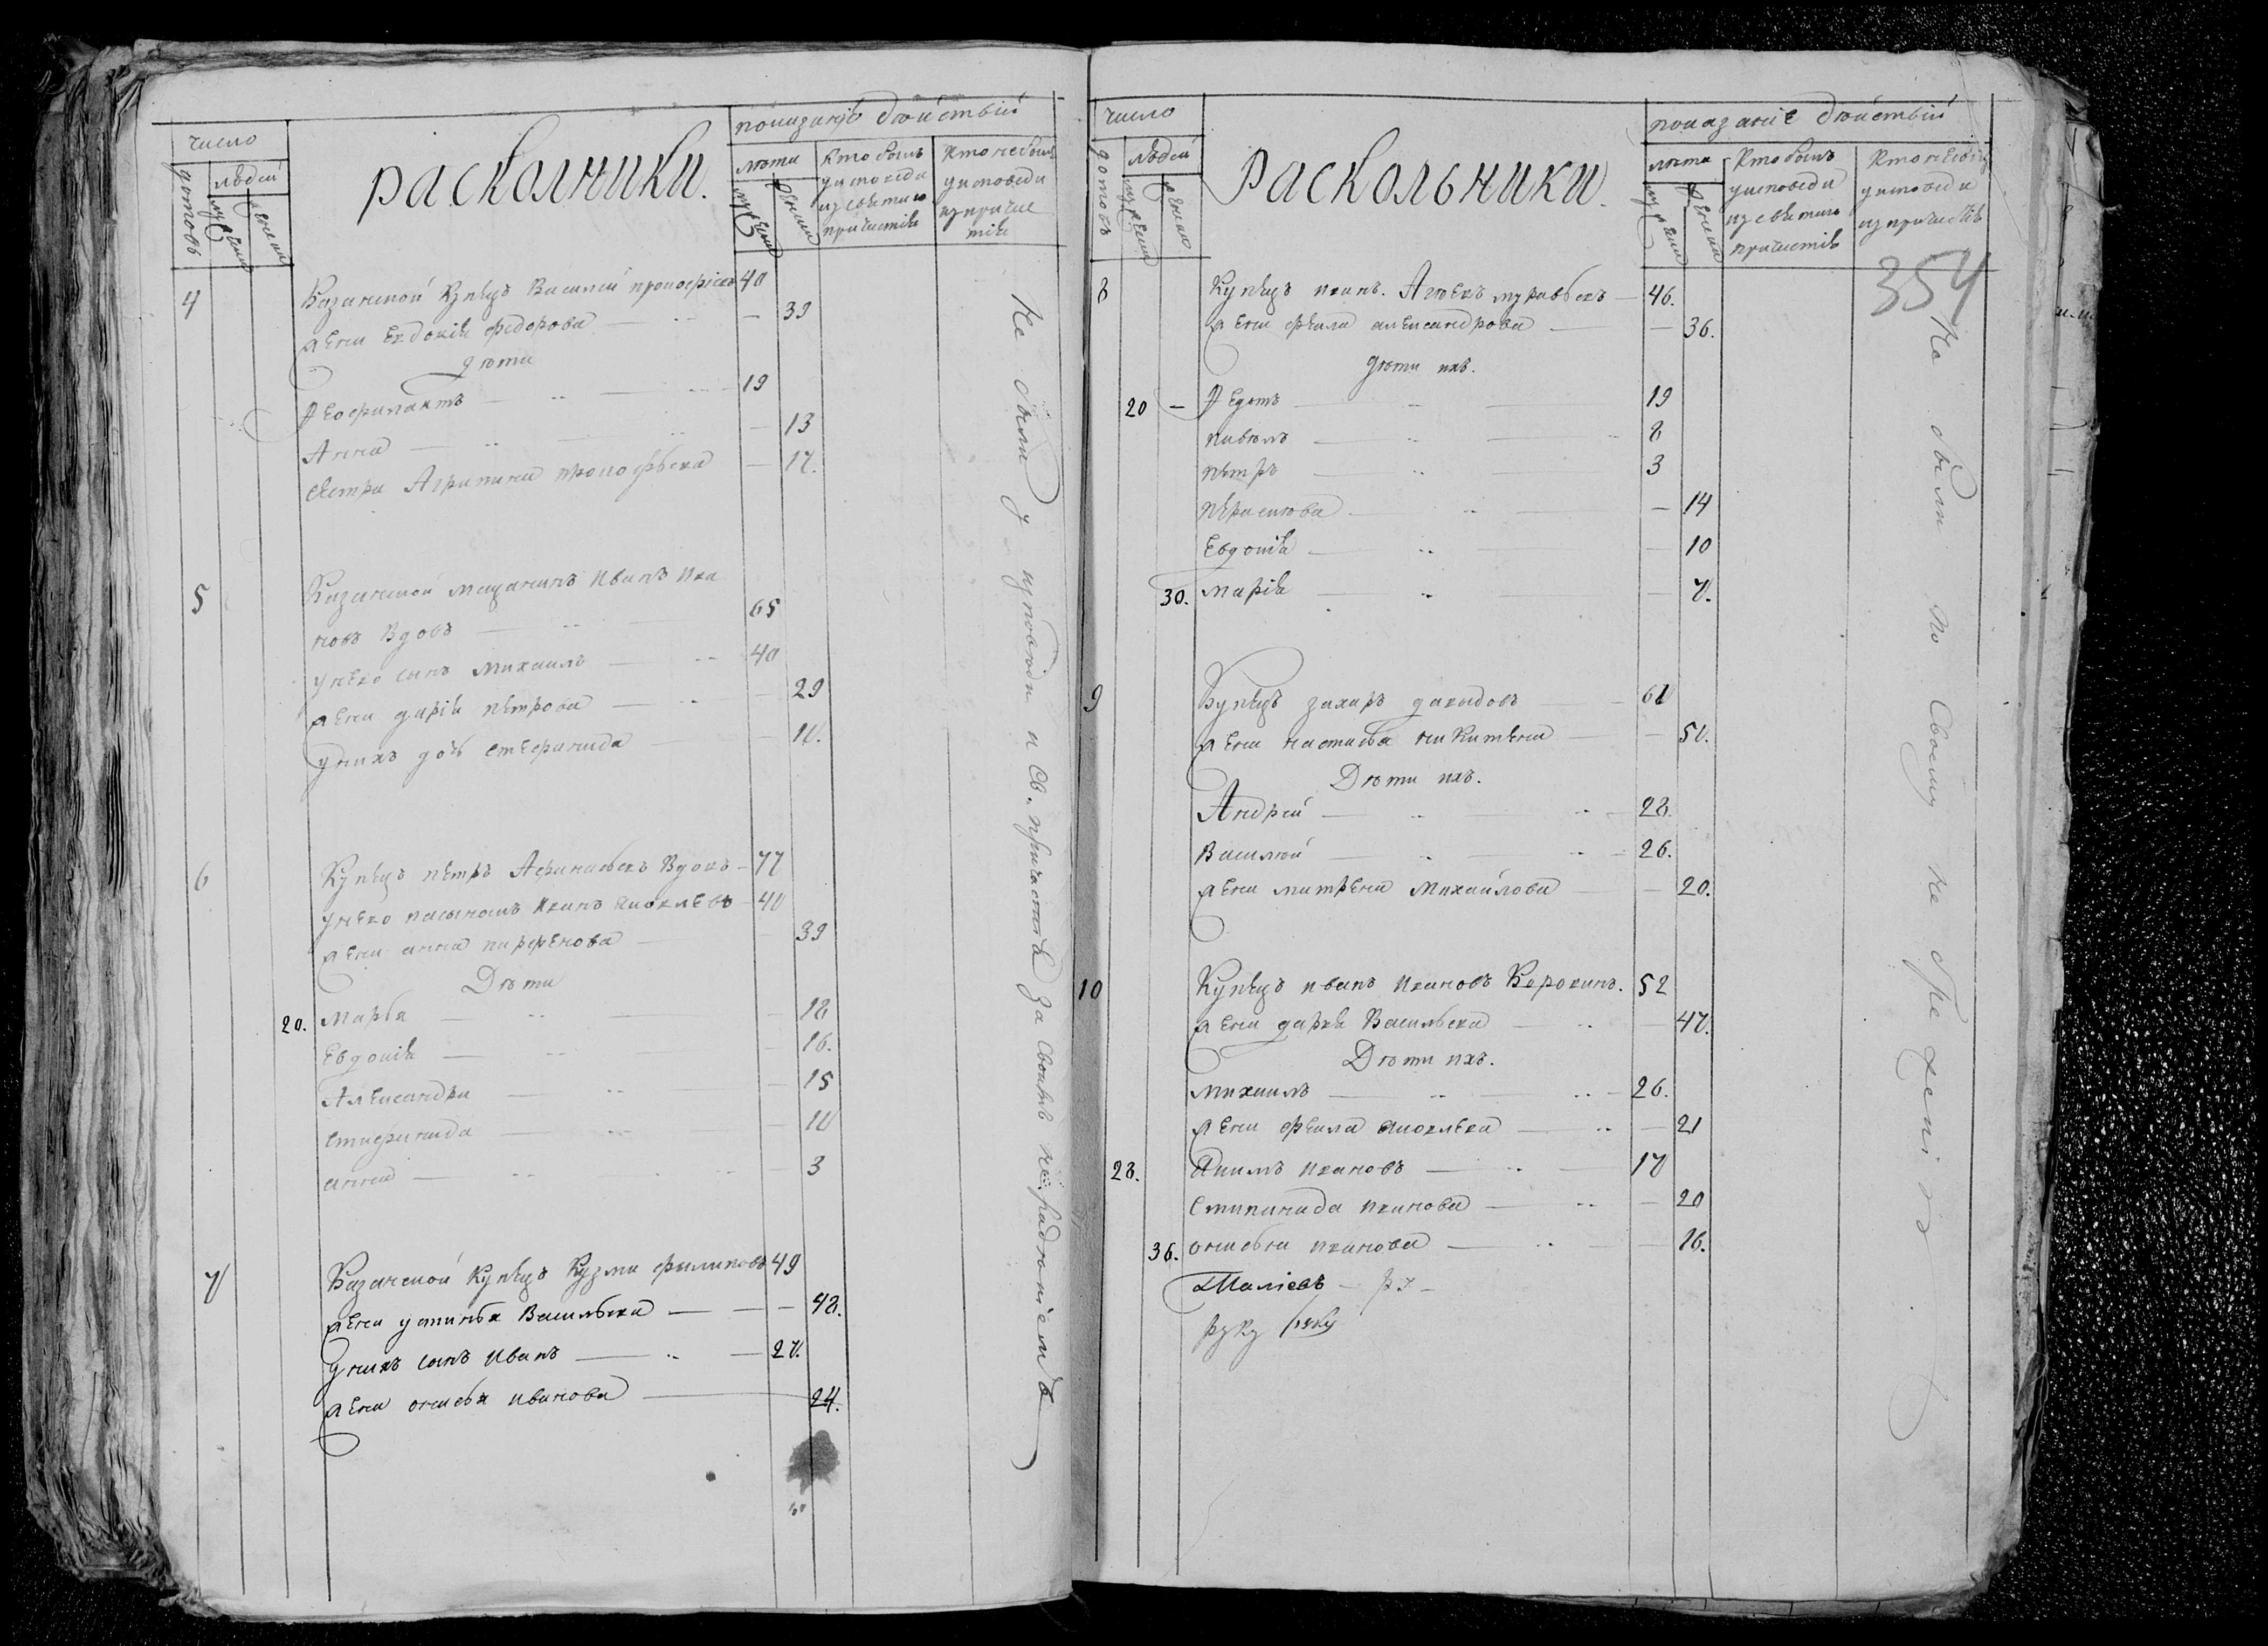 число
домовъ
людей
мужеска
женска
расколники.
показаніе действий
лѣта
мужеска
женска
Кто былъ
у исповеди
и у святаго
причастія
Кто не былъ
у исповеди
и у причас
тія
4
Казанской Купецъ Василей прокофьевъ 40
жена Евдокія федорова 39
дѣти
Феофилактъ 19
Анна 13
сестра Агрипина прокофьева 17.
5
Казанской мещанинъ Иванъ Ива
новъ Вдовъ 65
у него сынъ Михаилъ 40
жена дарія петрова 29
у нихъ дочь стефанида
6
Купецъ петръ Афанасьевъ Вдовъ 77
у него пасынокъ Иванъ яковлевъ 40
жена анна парфенова 39
Дѣти
20. Марья 18
Евдокія 16.
Александра 15
стефанида 10
анна 3
7
Казанской Купецъ Кузма филиповъ 49
жена устинья Васильева 48.
у нихъ сынъ Иванъ 27.
жена онисья иванова 24.
Не были у исповѣди и Св. причастія за своимъ нерадѣніемъ
число
домовъ
людей
мужеска
женска
Раскольники.
показаніе действій
лѣта
мужеска
женска
Кто былъ
у исповеди
и у святаго
причастія
Кто не былъ
у исповеди
и у причастія
354
8
Купецъ иванъ. муравьевъ 46.
жена фекла александрова 36.
дѣти ихъ.
20 — Федотъ 19
павелъ 8
петръ 3
парасковья 14
Евдокія 10
30. марія 7.
9
Купецъ захаръ давыдовъ 60
жена настасья никитина 50.
Дѣти ихъ.
Андрей 28.
Василей 26.
жена матрена Михайлова 20.
10
Купецъ иванъ ивановъ 52
жена дарья Васильева 47.
Дѣти ихъ.
михаилъ 26.
жена фекла яковлева 21
28. Якимъ ивановъ 17
степанида иванова 20
36. онисья иванова 16.
руку
Не были по Своему не брежению